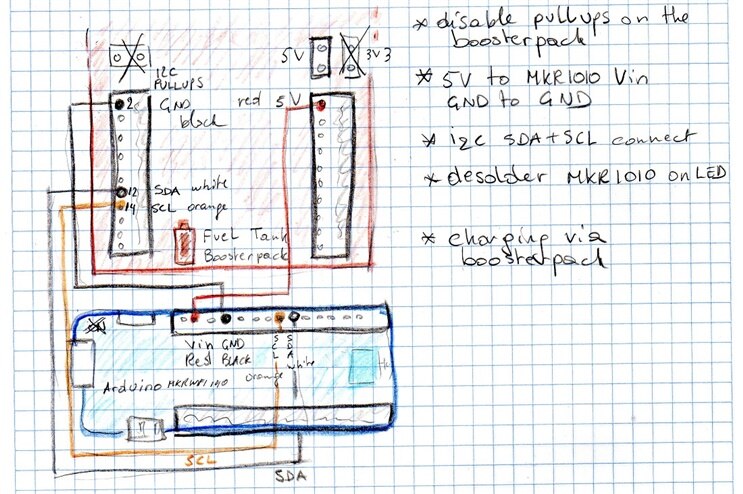 * disable pullups on the
boosterpack
* 5V to MKR1010 Vin
GND to GND
* i2c SDA+SCL connect
* desolder MKR1010 on LED
* charging via
boosterpack
5V
3V3
I2C
PULLUPS
2 GND
black
red 5V
12 SDA white
14 SCL orange
Fuel Tank
Boosterpack
Vin GND
Red BLACK
SCL
SDA
orange
white
Arduino
SCL
SDA